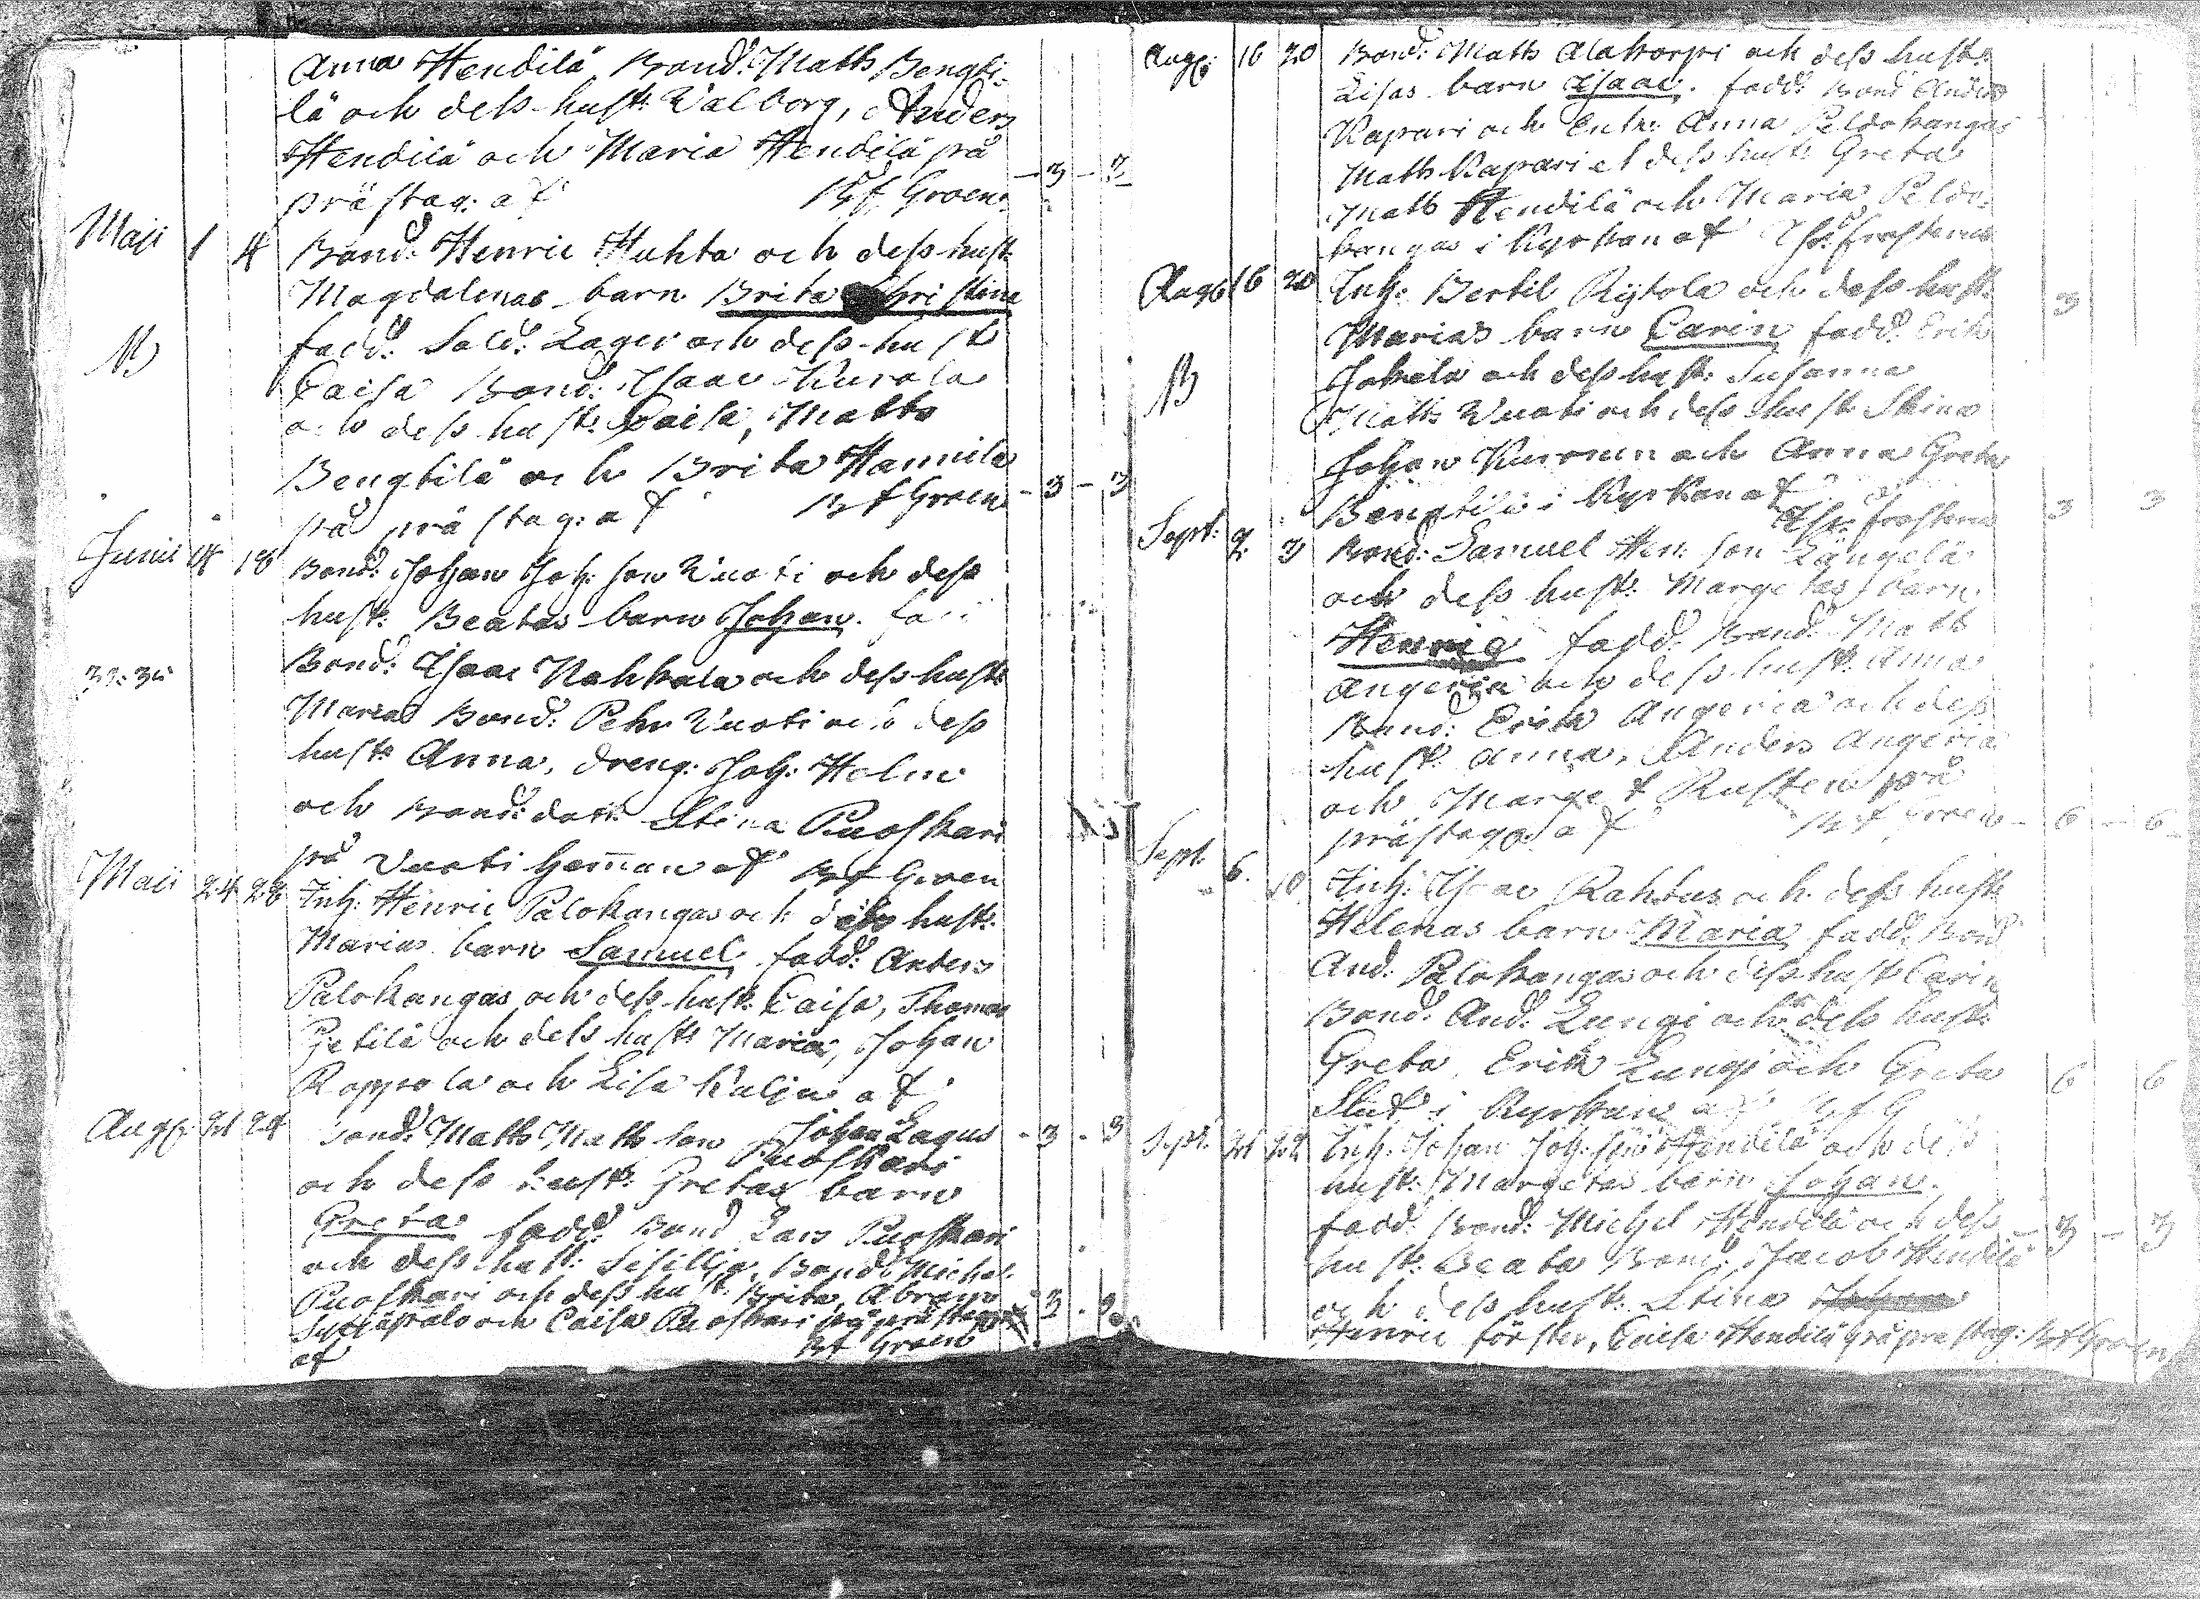 Anna Hendilä Bond: Matts Bengti-
lä och dess hust: Walborg, Anders
Hendilä och Maria Hendilä på
prästag: af Bf Groen - 3 - 3
Maji 1 4 Bond: Henric Huhta och dess hust:
Magdalenas barn Brita Christina
fadd: Sold: Lager och dess hust:
Caisa Bond: Isaac Kurola
och dess hust: Caisa, Matts
Bengtilä och Brita Hannila
på prästag: af Bf Groen - 3 - 3
Junii 14 18 Bond: Johan Joh: son Wuoti och dess
hust: Beatas barn Johan. fadd
Bond: Isaac Nahkala och dess hust:
Marias Bond: Pehr Wuoti och dess
hust: Anna, dreng: Joh: Holm
och Bond: dott: Stina Ruoskari
på Wuoti hemman af Bf Groen
Maii 24 28 Inh: Henric Palokangas och dess hust:
Marias barn Samuel fadd: Anders
Palokangas och dess hust: Caisa, Thomas
Pietilä och dess hust: Maria, Johan
Roppola och Lisa Kulju af
Johan Lagus - 3 - 3
Augg: 21 24 Bond: Matts Matts son Puoskari
och dess hust: Gretas barn
Greta fadd: Bond Lars Puoskari
och dess hust: Sisillja, Bond: Michel
Puoskari och dess hust: Brita, Abram
och Caisa Puoskari på prästag 3 - 3
af Bf Groen
Augg: 16 20 Bond: Matts Alakorpi och dess hust:
Lisas barn Isaac. fadd: Bond Anders
Kapari och Enk: Anna Peldokangas
Matts Kapari et dess hust: Greta
Matts Hendilä och Maria Peldo-
kangas i Kyrkan af Is: Frosterus
Augg 16 20 Inh: Bertil Rytola och dess hust: 3
Marias barn Carin fadd: Erik
Jokela och dess hust: Susanna
Matts Wuoti och dess hust: Stina
Johan Kuronen och Anna Greta
Bengtilä i Kyrkan af
Is: Frosterus 3 3
Sept: 2 3 Bond: Samuel Hen: son Längelä
och dess hust: Margetas barn
Henric fadd: Bond: Matts
Angeria och dess hust: Anna
Bond: Erik Angeria och dess
hust: Anna, Anders Angeria
och Marget Rusten på
prästag: af Bf Groen - 6 - 6
Sept: 6. 10 Inh: Isaac Rahtus och dess hust:
Helenas barn Maria fadd: Bond
And: Palokangas och dess hust Carin
Bond: And: Lungi och dess hust:
Greta, Erik Lungi och Greta 6 6
Slut i Kyrkan af Bf G
Sept: 21 22 Inh: Johan Joh: son Hendilä och dess
hust: Margetas barn Johan.
fadd: Bond: Michel Hendilä och dess - 3 - 3
hust: Beata Bond: Jacob Hendilä
och dess hust: Stina
Henric Förster, Caisa Hendilä på prestag: Bf Groen